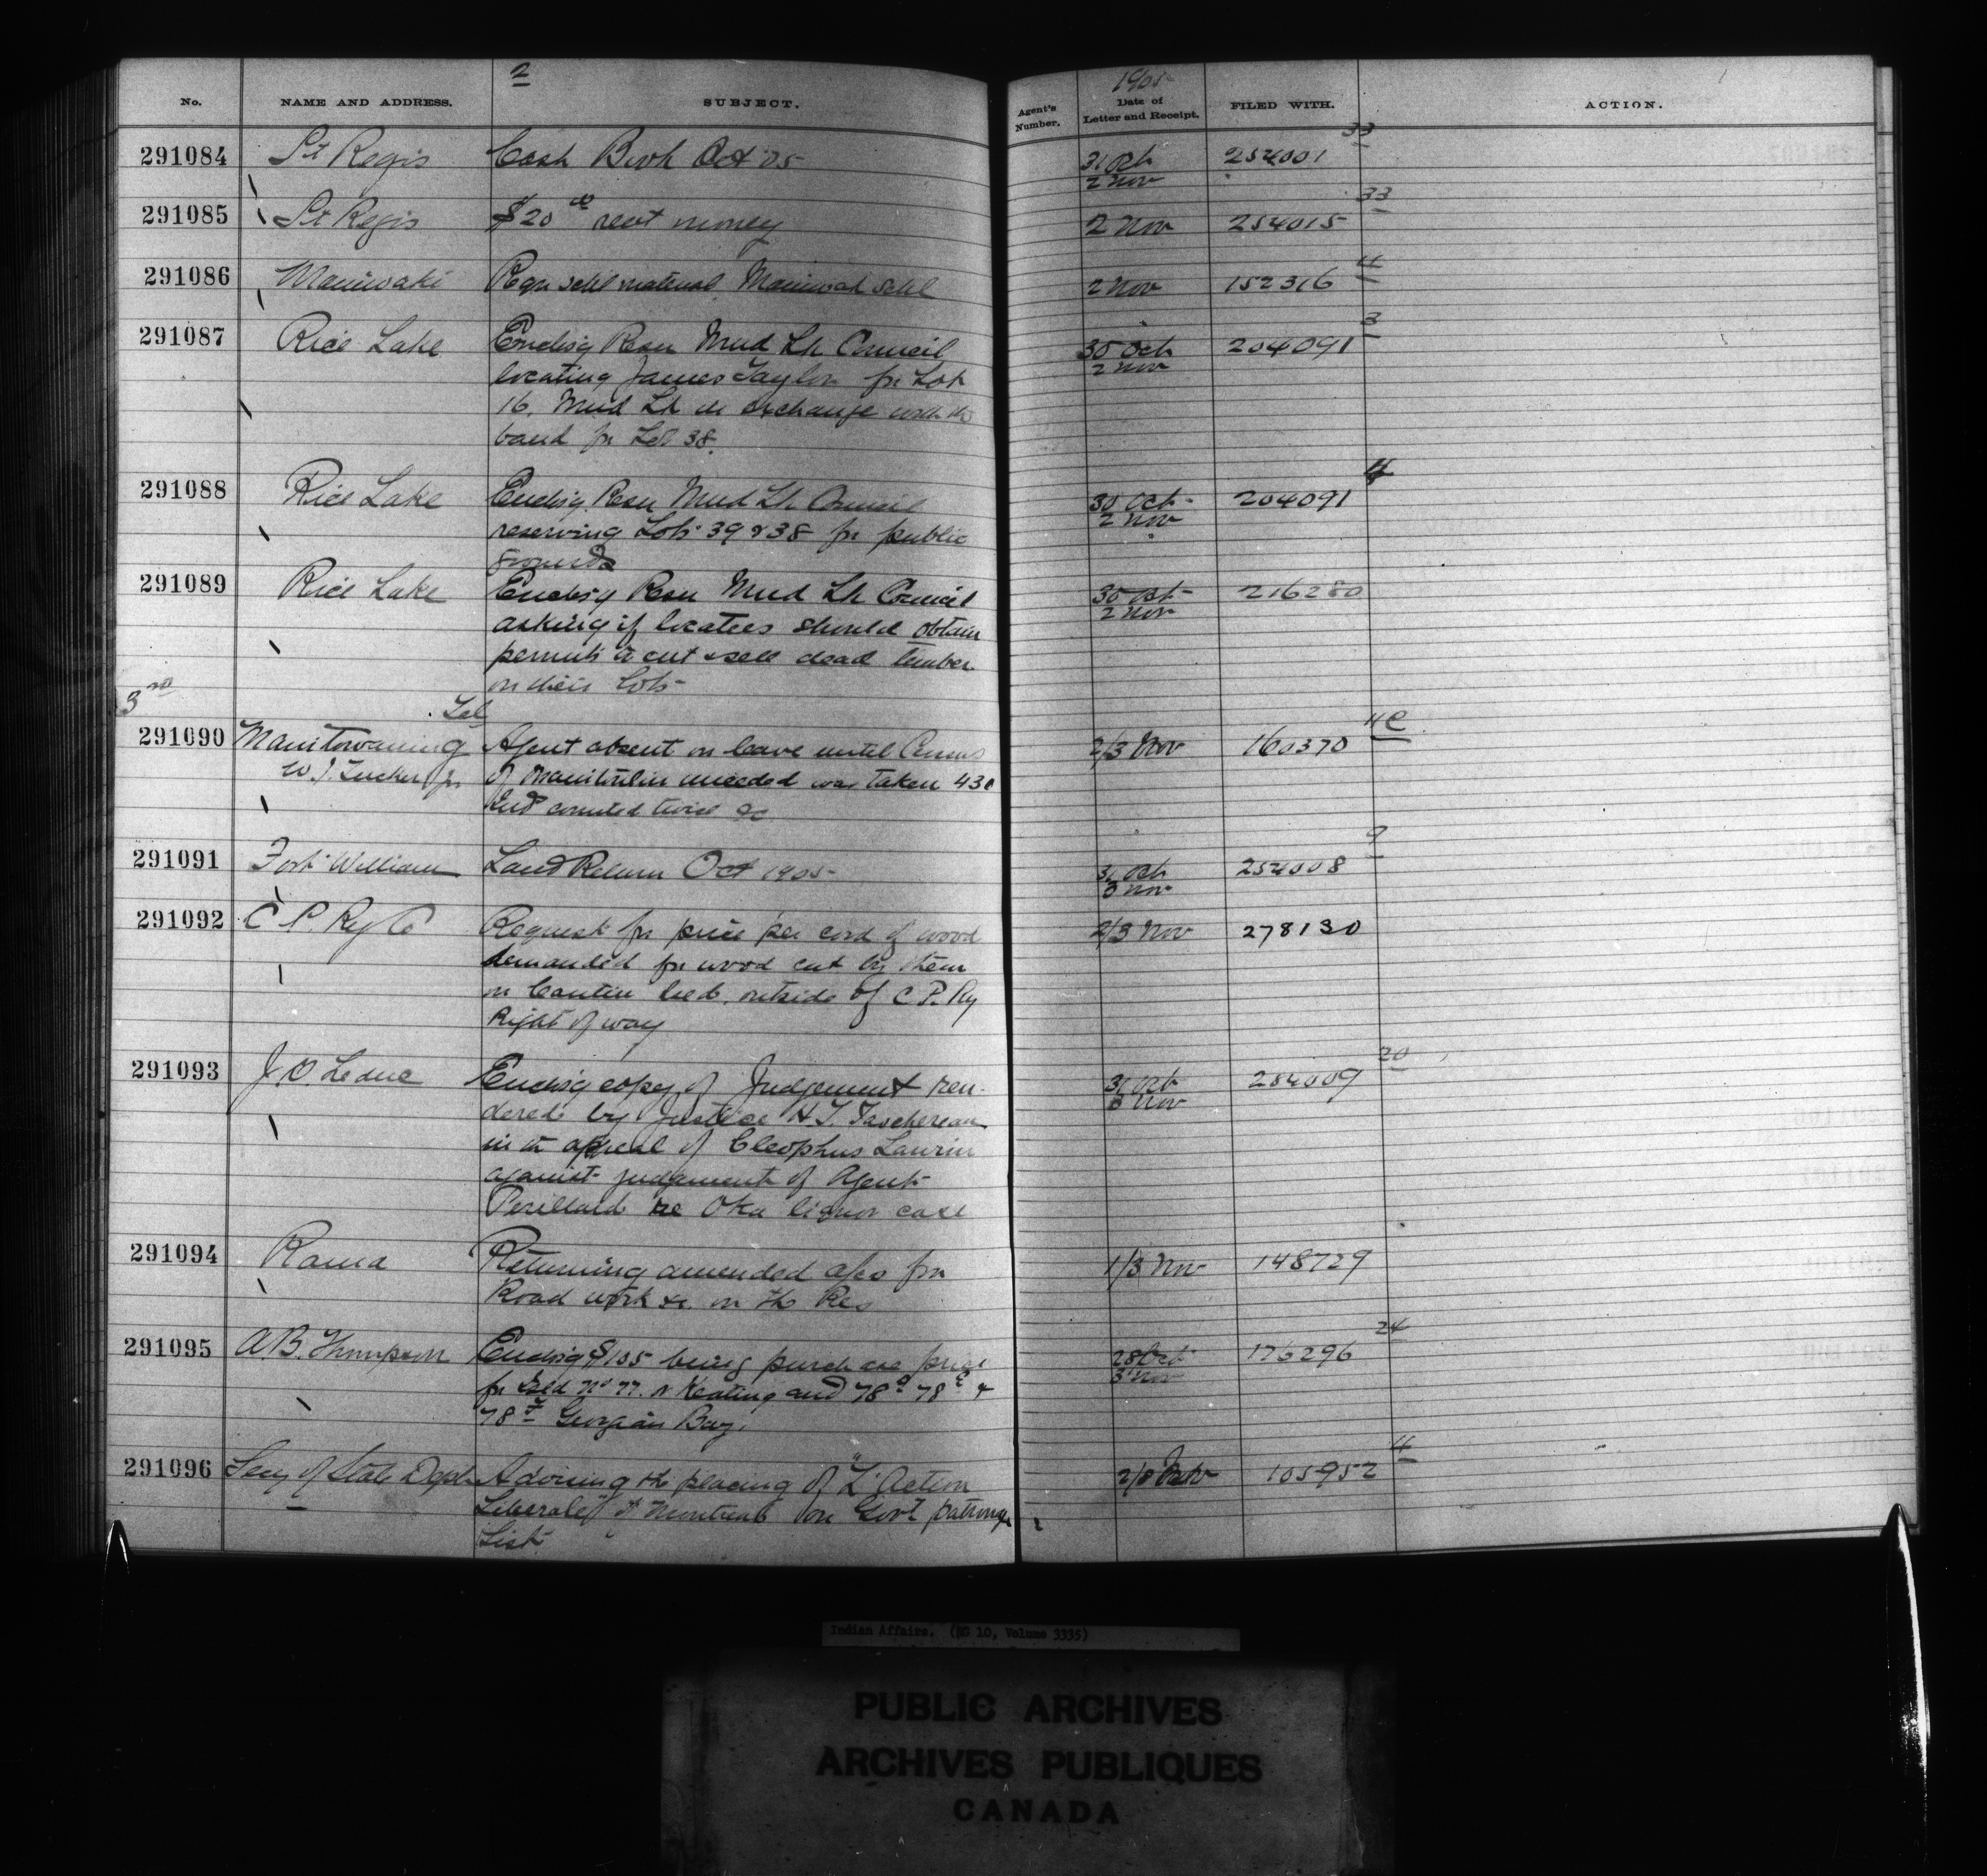 2
1905
No. NAME AND ADDRESS. SUBJECT. Agent's Number. Date of Letter and Receipt. FILED WITH. ACTION.
291084 St Regis Cash Book Oct 05 31 Oct 254001 33
2 Nov
291085 St Regis $20 00 rent money 2 Nov 254015 33
291086 Maniwaki Reqn schl material Maniwaki schl 2 Nov 152316 4
291087 Rice Lake Enclosig Resn Mud Lk Council 30 Oct 204091 3
locating James Taylor for Lot 2 Nov
16, Mud Lk in exchange with the
band for Lot 38.
291088 Rice Lake Enclosig Resn Mud Lk Council 30 Oct 204091 4
reserving Lots 39 & 38 for public 2 Nov
grounds
291089 Rice Lake Enclosig Resn Mud Lk Council 30 Oct 216280
asking if locatees should obtain 2 Nov
permits to cut & sell dead timber
on their lots
3rd
Tel
291090 Manitowaning Agent absent on leave until Census 2/3 Nov 160370 4 C
W. J. Tucker for of Manitoulin unceded was taken 430
Inds counted twice &c
291091 Fort William Land Return Oct 1905 31 Oct 254008 9
3 Nov
291092 C P. Ry Co Request for price per cord of wood 2/3 Nov 278130
demanded for wood cut by them
on outside of C P. Ry
Right of way
291093 J. O Leduc Enclosig copy of Judgement ren- 31 Oct 254009 20
dered by Justice H. T. Taschereau 3 Nov
in the appeal of Cleophus Laurin
against judgement of Agent
Perillard re Oka liquor case
291094 Rama Returning amended a/cs for 1/3 Nov 148729
Road work &c. on the Res
291095 A. B. Thompson Enclosig $105 being purchase price 28 Oct 176296 24
for Isld No 77. N Keating and 78 78 & 3 Nov
78 Georgian Bay.
291096 Secy of State Dept Advising the placing of "L'Action 105952 4
Liberale" of Montreal on Govt patronage
List
Indian Affairs. (RG 10, Volume 3335)
PUBLIC ARCHIVES
ARCHIVES PUBLIQUES
CANADA